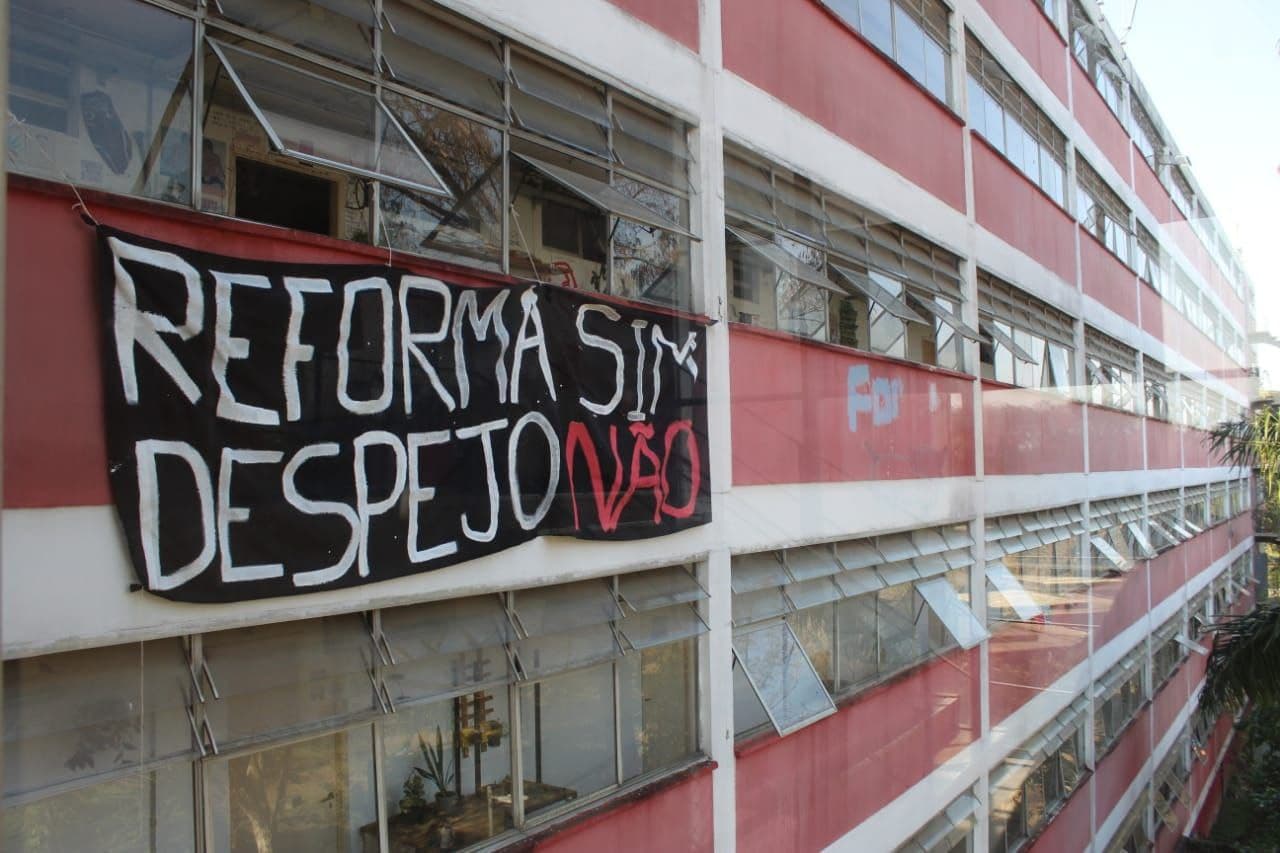 REFORMA SIM
DESPEJO NÃO